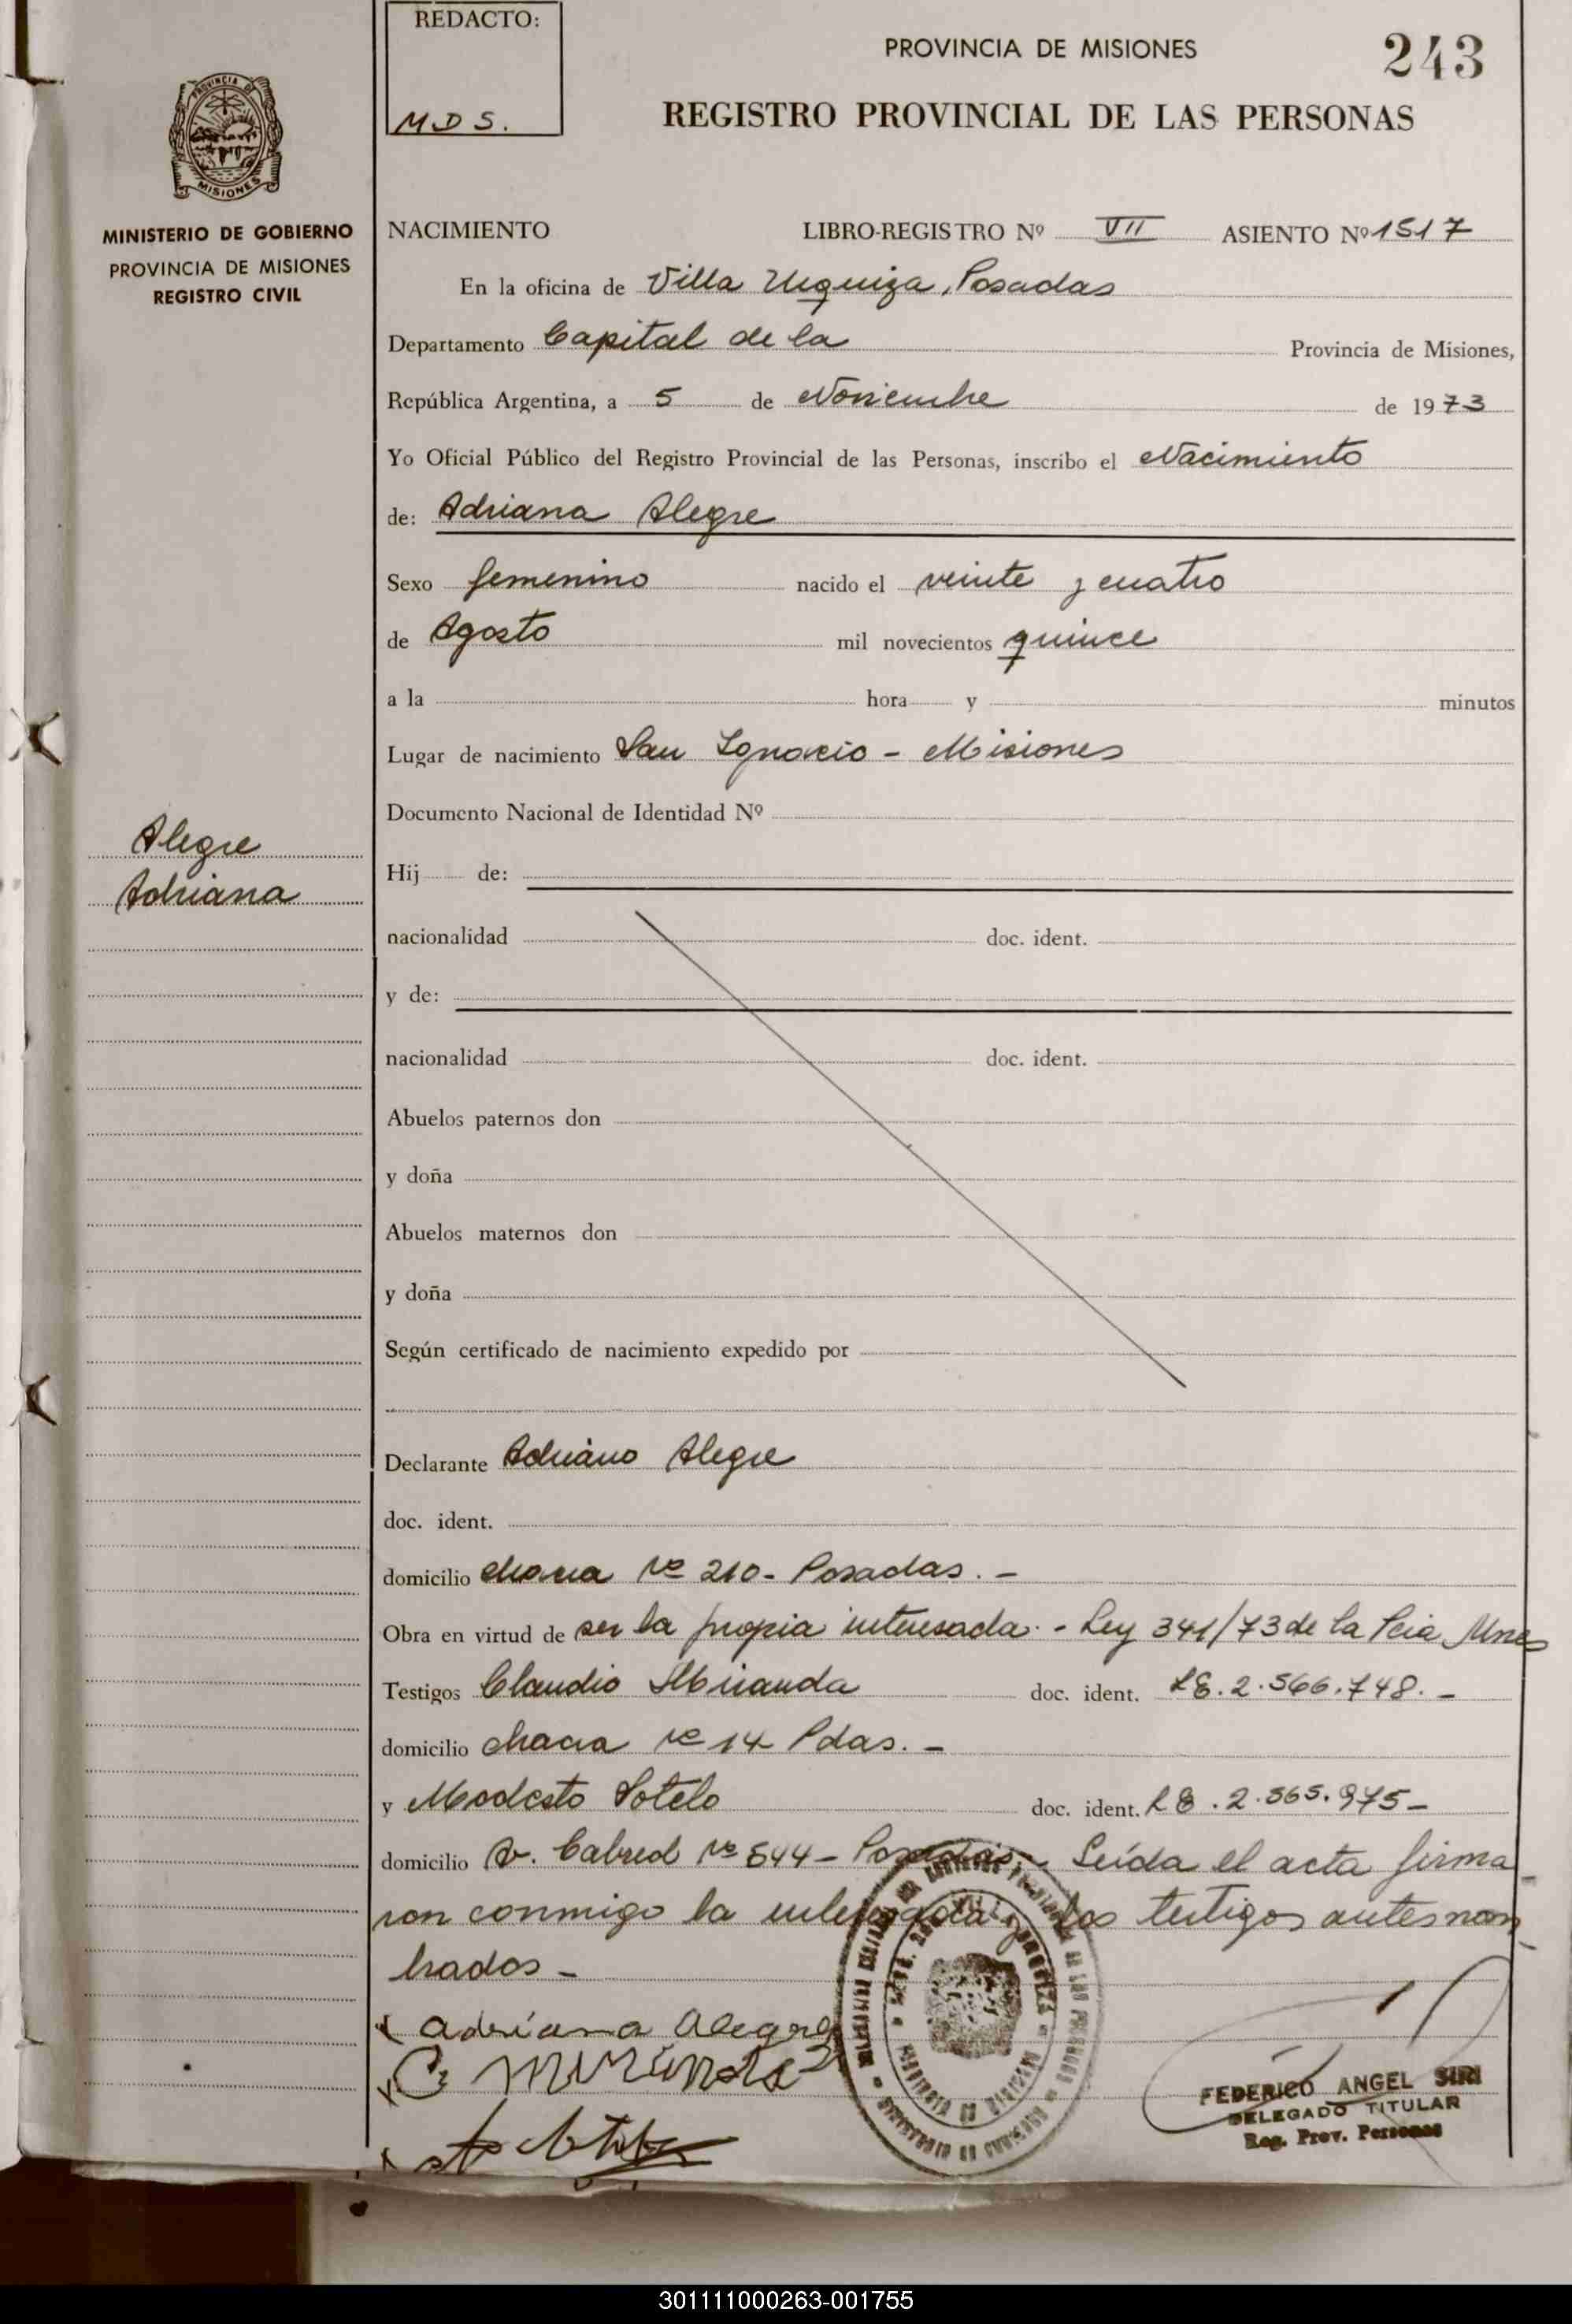 REDACTO:
M D S.
PROVINCIA DE MISIONES
243
REGISTRO PROVINCIAL DE LAS PERSONAS
PROVINCIA DE
MISIONES
MINISTERIO DE GOBIERNO
PROVINCIA DE MISIONES
REGISTRO CIVIL
NACIMIENTO LIBRO-REGISTRO Nº VII ASIENTO Nº 1517
En la oficina de Villa Urquiza, Posadas
Departamento Capital de la Provincia de Misiones,
República Argentina, a 5 de Noviembre de 1973
Yo Oficial Público del Registro Provincial de las Personas, inscribo el Nacimiento
de: Adriana Alegre
Sexo femenino nacido el veinte y cuatro
de Agosto mil novecientos quince
a la hora y minutos
Lugar de nacimiento San Ignacio - Misiones
Documento Nacional de Identidad Nº
Alegre
Adriana
Hij de:
nacionalidad doc. ident.
y de:
nacionalidad doc. ident.
Abuelos paternos don
y doña
Abuelos maternos don
y doña
Según certificado de nacimiento expedido por
Declarante Adriano Alegre
doc. ident.
domicilio chacra Nº 210- Posadas. -
Obra en virtud de ser la propia interesada. - Ley 341/73 de la Pcia Mnes
Testigos Claudio Miranda doc. ident. LE. 2.566.748. -
domicilio chacra Nº 14 Pdas. -
y Modesto Sotelo doc. ident. LE. 2.565.975 -
domicilio Av. Cabred Nº 644 - Posadas - Leída el acta firma
ron conmigo la interesada y los testigos antes nom
brados -
adriana Alegre
C. Miranda
FEDERICO ANGEL SIRI
DELEGADO TITULAR
Reg. Prov. Personas
301111000263-001755